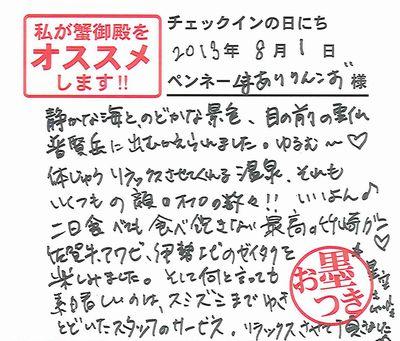 私が蟹御殿を
オススメ
します!!
チェックインの日にち
2013年 8月 1日
ペンネーム ありりんこ 様
静かな海とのどかな景色、目の前の雲仙
普賢岳に出むかえられました。ゆるむ〜♡
体じゅうリラックスさせてくれる温泉、それも
いくつもの顔の数々!! いいよん♪
二日食べても食べ飽きない最高の竹崎ガニ
佐賀牛、アワビ、伊勢エビのゼイタクを
楽しみました。そして何と言っても
素晴しいのは、スミズミまでゆき
とどいたスタッフのサービス。リラックスさせて頂きました
お墨つき